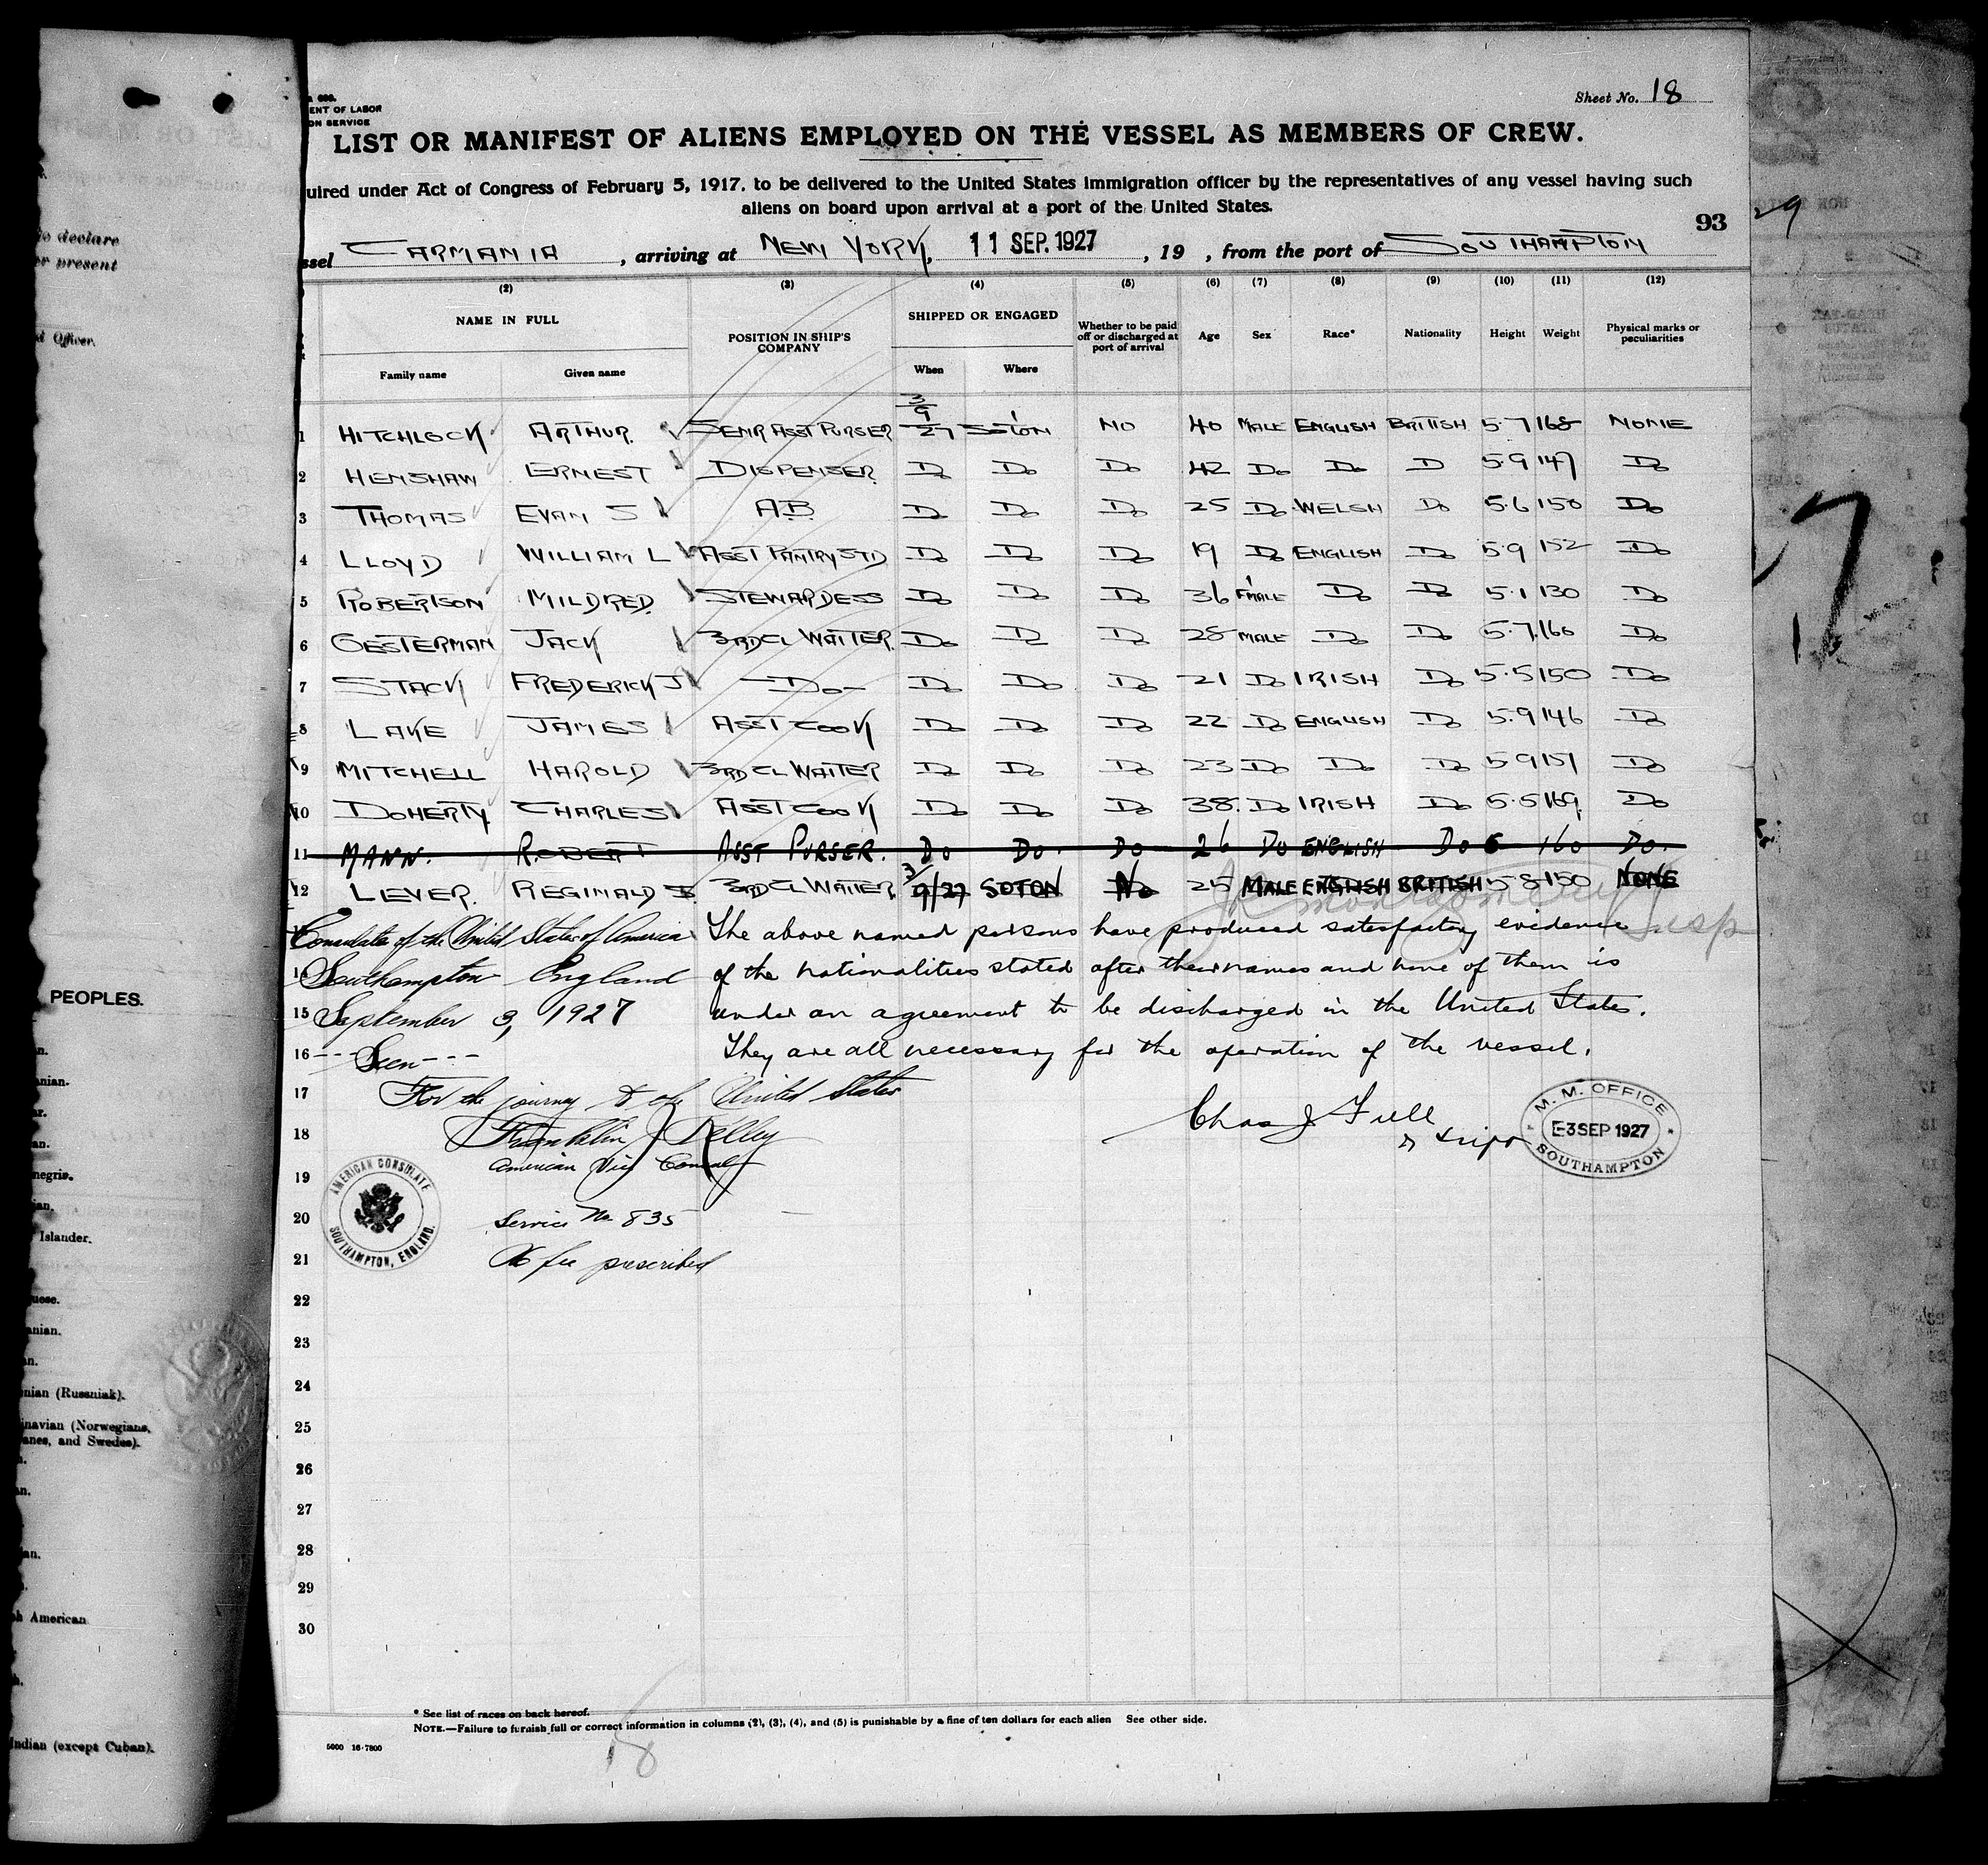 o declare
or present
d Officer.
PEOPLES.
Islander.
nian (Russniak).
inavian (Norwegians,
anes, and Swedes).
h American
Indian (except Cuban).
ENT OF LABOR
ON SERVICE
Sheet No. 18
LIST OR MANIFEST OF ALIENS EMPLOYED ON THE VESSEL AS MEMBERS OF CREW.
uired under Act of Congress of February 5, 1917, to be delivered to the United States immigration officer by the representatives of any vessel having such
aliens on board upon arrival at a port of the United States.
93
ssel CARMANIA, arriving at NEW YORK, 11 SEP. 1927, 19 , from the port of SOUTHAMPTON
(2) (3) (4) (5) (6) (7) (8) (9) (10) (11) (12)
NAME IN FULL POSITION IN SHIP'S COMPANY SHIPPED OR ENGAGED Whether to be paid off or discharged at port of arrival Age Sex Race* Nationality Height Weight Physical marks or peculiarities
Family name Given name When Where
1 HITCHLOCK ARTHUR. SENR ASST PURSER 3/9/27 S'TON NO 40 MALE ENGLISH BRITISH 5.7 168 NONE
2 HENSHAW ERNEST DISPENSER Do Do Do 42 Do Do D 5.9 147 Do
3 THOMAS EVAN S A.B. Do Do Do 25 Do WELSH Do 5.6 150 Do
4 LLOYD WILLIAM L ASST PANTRY STD Do Do Do 19 Do ENGLISH Do 5.9 152 Do
5 ROBERTSON MILDRED. STEWARDESS Do Do Do 36 F'MALE Do Do 5.1 130 Do
6 OESTERMAN JACK 3RD CL WAITER. Do Do Do 28 MALE Do Do 5.7 166 Do
7 STACK FREDERICK J —Do— Do Do Do 21 Do IRISH Do 5.5 150 Do
8 LAKE JAMES ASST COOK Do Do Do 22 Do ENGLISH Do 5.9 146 Do
9 MITCHELL HAROLD 3RD CL WAITER Do Do Do 23 Do Do Do 5 9 151 Do
10 DOHERTY. CHARLES ASST COOK Do Do Do 38. Do IRISH Do 5.5 169. Do
11 MANN. ROBERT ASST PURSER. Do Do. Do 26 Do ENGLISH Do 6 160 Do.
12 LEVER. REGINALD 3RD CL WAITER. 3/9/27 SOTON No 25 MALE ENGLISH BRITISH 5 8 150 NONE
Insp
Consulate of the United States of America The above named persons have produced satisfactory evidence
Southampton England of the nationalities stated after their names and none of them is
15 September 3, 1927 under an agreement to be discharged in the United States.
16 ---Seen--- They are all necessary for the operation of the vessel.
17 For the journey to the United States
18 Franklin J Kelley Chas J Full
American Vice Consul
M. M. OFFICE
E-3 SEP 1927
SOUTHAMPTON
19
AMERICAN CONSULATE
SOUTHAMPTON, ENGLAND.
20 Service No 835
21 No fee prescribed
22
23
24
25
26
27
28
29
30
* See list of races on back hereof.
NOTE.—Failure to furnish full or correct information in columns (2), (3), (4), and (5) is punishable by a fine of ten dollars for each alien See other side.
5000 16-7800
18